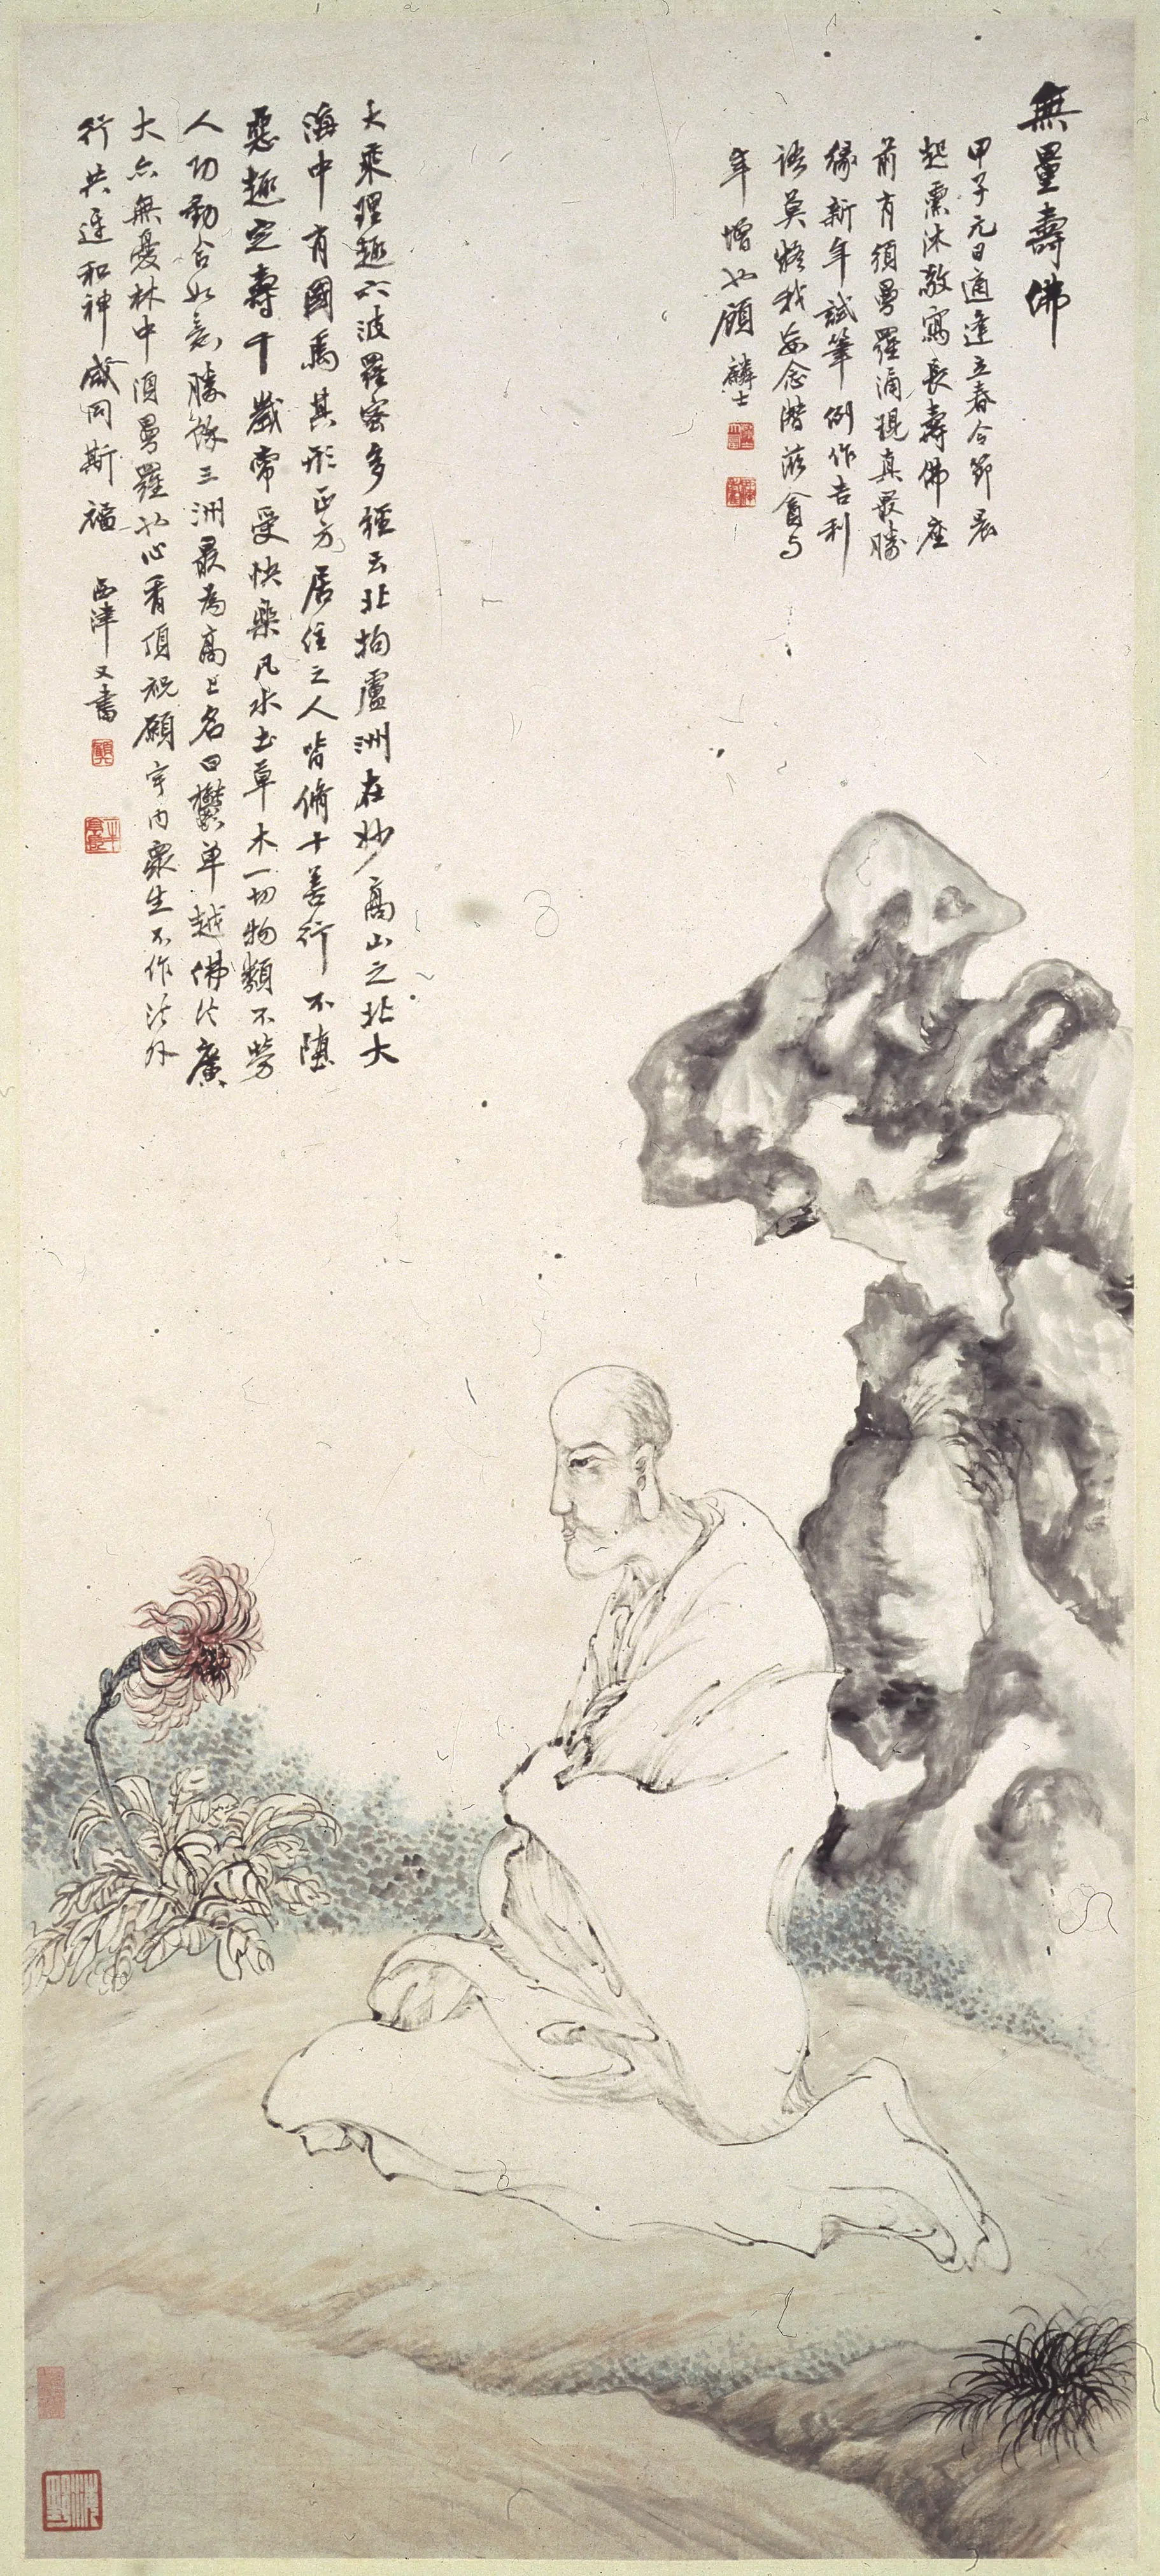 無量壽佛
甲子元日適逢立春令節晨
起熏沐敬寫長壽佛座
前有須曼羅涌現真最勝
緣新年試筆例作吉利
語莫將我妄念隨
年增也顧麟士
大乘理趣六波羅蜜多經云北拘盧洲在妙高山之北大
海中有國焉其形正方居住之人皆脩十善行不墮
惡趣定壽千歲常受快樂凡水土草木一切物類不勞
人功動合如意勝餘三洲最為高上名曰鬱單越佛法廣
大亦無憂林中須曼羅也心香頂祝願宇内衆生不作法外
行共迓和神咸同斯福
西津又書